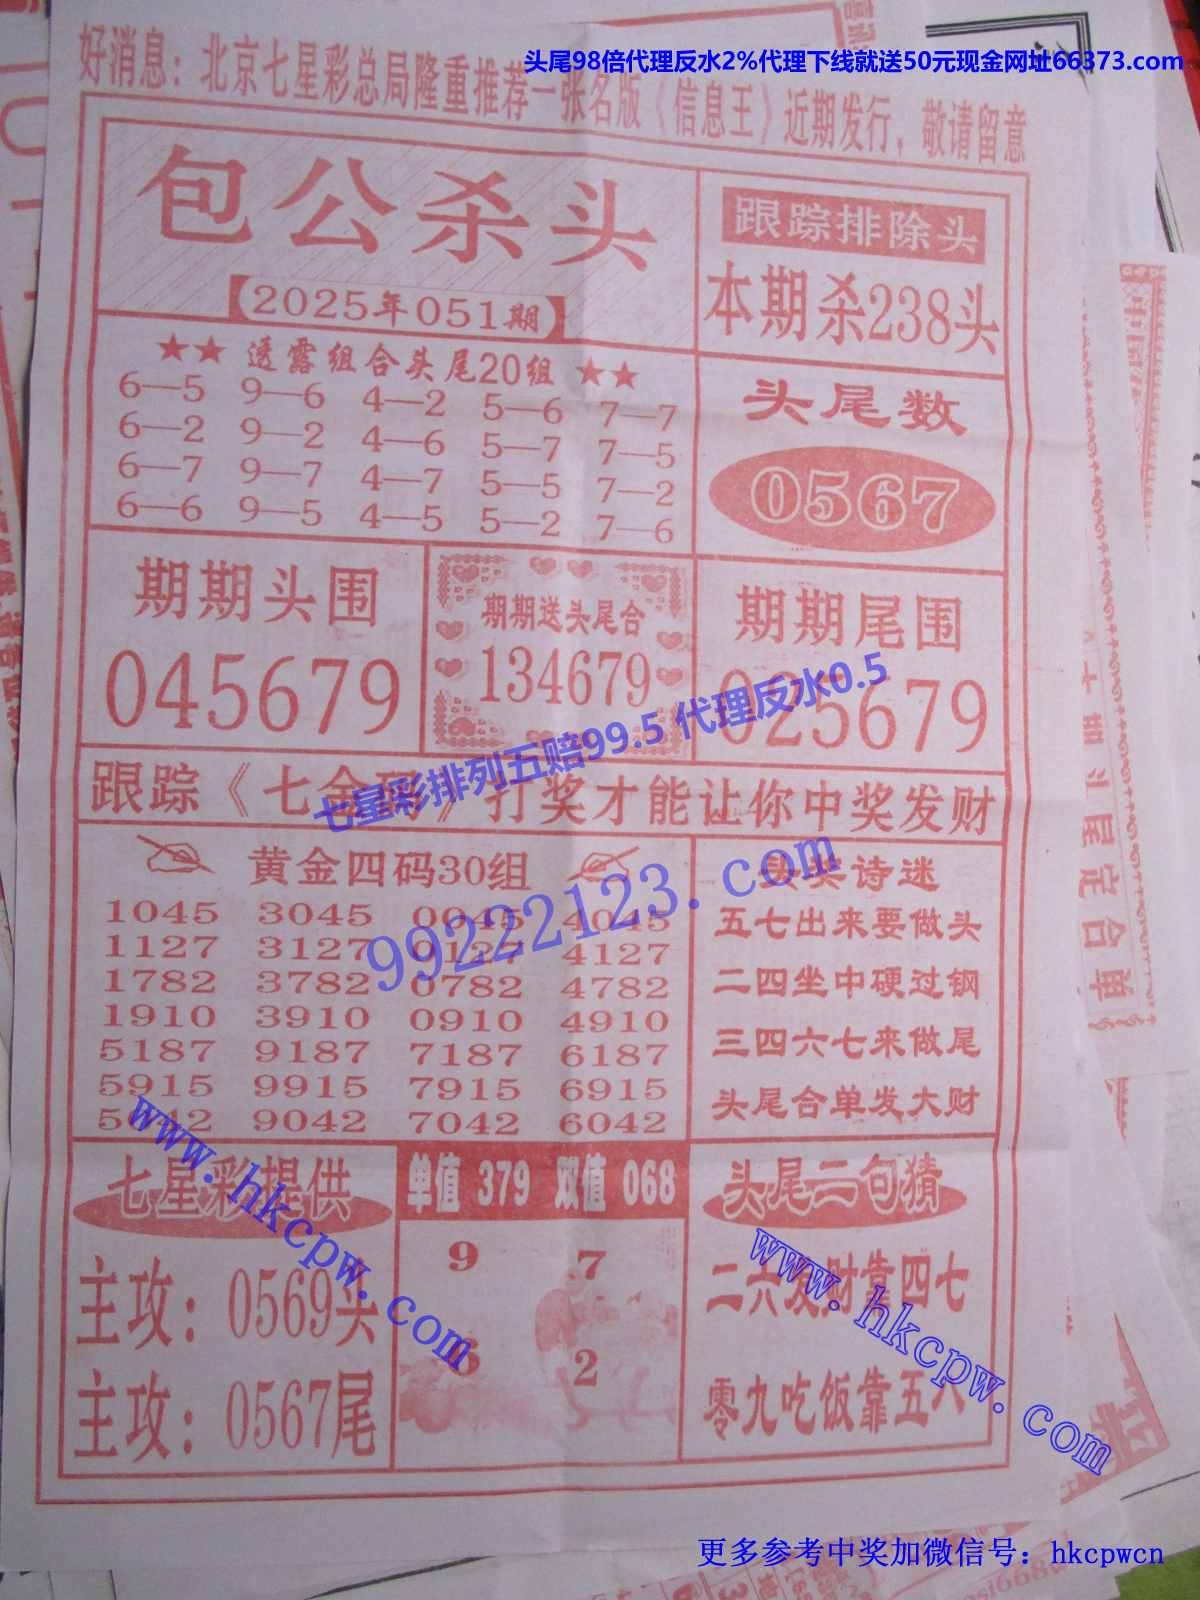 头尾98倍代理反水2%代理下线就送50元现金网址66373.com
好消息：北京七星彩总局隆重推荐一张名版《信息王》近期发行，敬请留意
包公杀头
【2025年051期】
跟踪排除头
本期杀238头
★★ 透露组合头尾20组 ★★
6—5 9—6 4—2 5—6 7—7
6—2 9—2 4—6 5—7 7—5
6—7 9—7 4—7 5—5 7—2
6—6 9—5 4—5 5—2 7—6
头尾数
0567
期期头围
045679
期期送头尾合
134679
期期尾围
025679
七星彩排列五赔99.5 代理反水0.5
跟踪《七金码》打奖才能让你中奖发财
黄金四码30组
1045 3045 0045 4045
1127 3127 0127 4127
1782 3782 0782 4782
1910 3910 0910 4910
5187 9187 7187 6187
5915 9915 7915 6915
5042 9042 7042 6042
99222123.com
头奖诗迷
五七出来要做头
二四坐中硬过钢
三四六七来做尾
头尾合单发大财
七星彩提供
主攻：0569头
主攻：0567尾
单值 379 双值 068
9 7
6 2
头尾二句猜
二六发财靠四七
零九吃饭靠五八
www.hkcpw.com
www.hkcpw.com
斗尾定合单
更多参考中奖加微信号：hkcpwcn